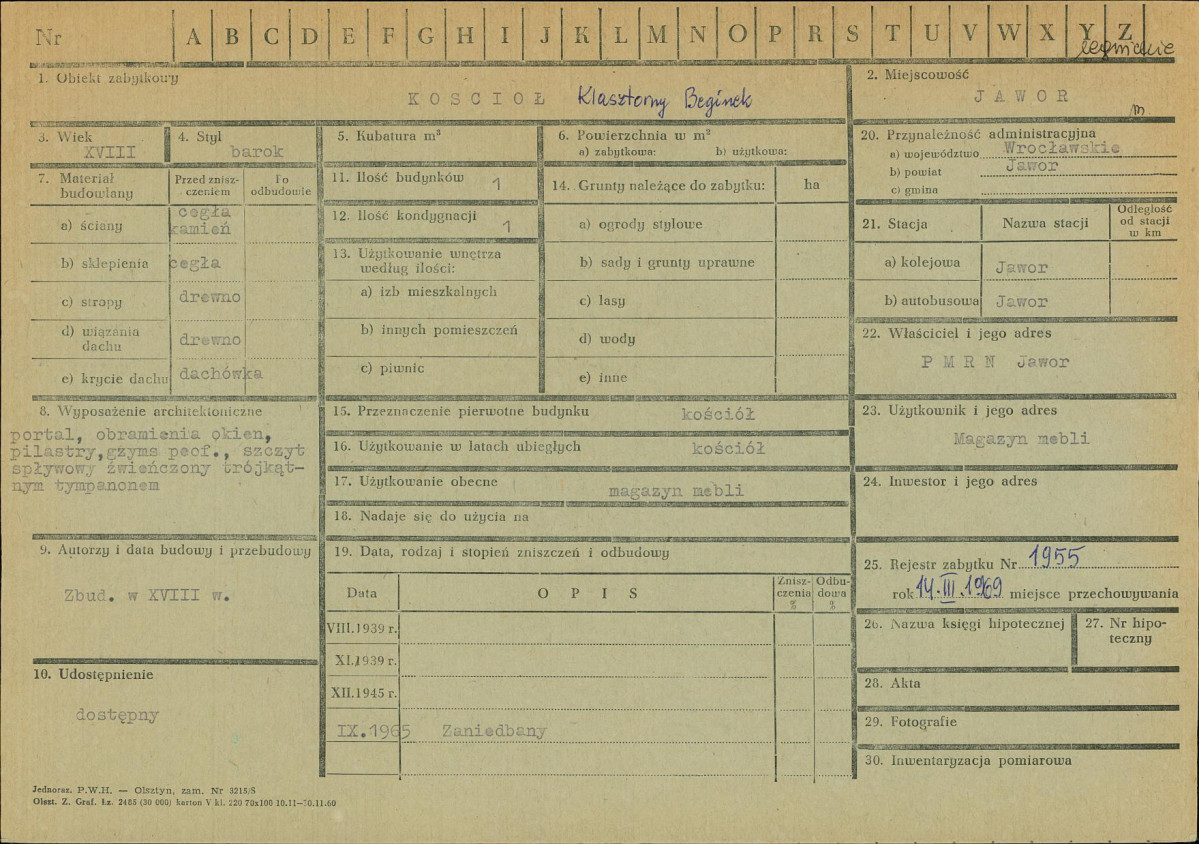 Nr A B C D E F G H I J K L M N O P R S T U V W X Y Z
legnickie
1. Obiekt zabytkowy
KOSCIOŁ Klasztorny Beginek
2. Miejscowość
JAWOR
m
3. Wiek
XVIII
4. Styl
barok
5. Kubatura m³
6. Powierzchnia w m²
a) zabytkowa: b) użytkowa:
20. Przynależność administracyjna
a) województwo Wrocławskie
b) powiat Jawor
c) gmina
7. Materiał budowlany
Przed zniszczeniem
Po odbudowie
a) ściany cegła kamień
b) sklepienia cegła
c) stropy drewno
d) wiązania dachu drewno
e) krycie dachu dachówka
11. Ilość budynków 1
12. Ilość kondygnacji 1
13. Użytkowanie wnętrza
według ilości:
a) izb mieszkalnych
b) innych pomieszczeń
c) piwnic
14. Grunty należące do zabytku: ha
a) ogrody stylowe
b) sady i grunty uprawne
c) lasy
d) wody
e) inne
21. Stacja Nazwa stacji Odległość od stacji w km
a) kolejowa Jawor
b) autobusowa Jawor
22. Właściciel i jego adres
PMRN Jawor
8. Wyposażenie architektoniczne
portal, obramienia okien,
pilastry,gzyms peof., szczyt
spływowy źwieńczony trójkąt-
nym tympanonem
15. Przeznaczenie pierwotne budynku kościół
16. Użytkowanie w latach ubiegłych kościół
17. Użytkowanie obecne magazyn mebli
18. Nadaje się do użycia na
23. Użytkownik i jego adres
Magazyn mebli
24. Inwestor i jego adres
9. Autorzy i data budowy i przebudowy
Zbud. w XVIII w.
10. Udostępnienie
dostępny
19. Data, rodzaj i stopień zniszczeń i odbudowy
Data OPIS Zniszczenia % Odbudowa %
VIII.1939 r.
XI.1939 r.
XII.1945 r.
IX.1965 Zaniedbany
25. Rejestr zabytku Nr 1955
rok 14.III.1969 miejsce przechowywania
26. Nazwa księgi hipotecznej
27. Nr hipo-
teczny
28. Akta
29. Fotografie
30. Inwentaryzacja pomiarowa
Jednoraz. P.W.H. — Olsztyn, zam. Nr 3215/S
Olszt. Z. Graf. Łz. 2485 (30 000) karton V kl. 220 70x100 10.11—30.11.60